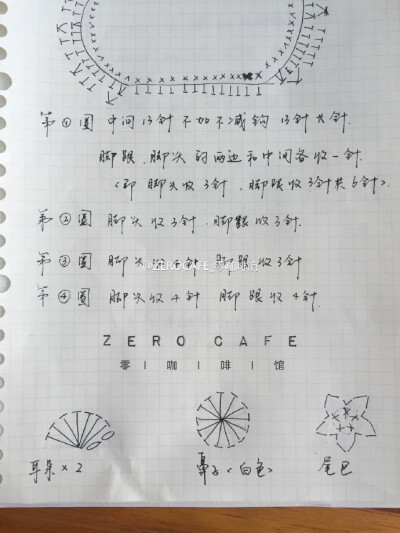 第①圈 中间13针不加不减钩13针长针.
脚跟.脚头的两边和中间各收一针
<即 脚头收3针,脚跟收3针共6针>.
第②圈 脚头收3针.脚跟收3针.
第③圈 脚头收 针 脚跟收3针
@ZEROCAFE_零咖啡馆
第④圈 脚头收4针 脚跟收4针.
ZERO CAFE
零|咖|啡|馆
耳朵×2 鼻子<白色> 尾巴